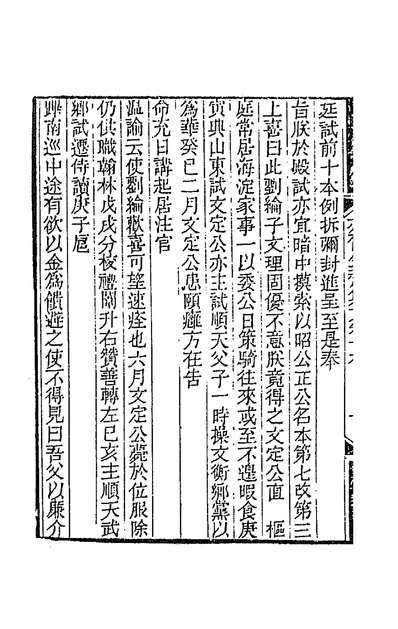 廷試前十本例拆彌封進呈至是奉
旨朕於殿試亦宜暗中摸索以昭公正公名本第七改第三
上喜曰此劉綸子文理固優不意朕竟得之文定公面　樞
庭常居海淀家事一以委公日策騎往來或至不遑暇食庚
寅典山東試文定公亦主試順天父子一時操文衡鄉黨以
爲華癸巳二月文定公患頤癰方在告
命充日講起居注官
溫諭云使劉綸歡喜可望速痊也六月文定公薨於位服除
仍供職翰林戊戌分校禮闈升右贊善轉左己亥主順天武
鄉試遷侍讀庚子扈
蹕南巡中途有欲以金爲饋遊之使不得見曰吾父以廉介